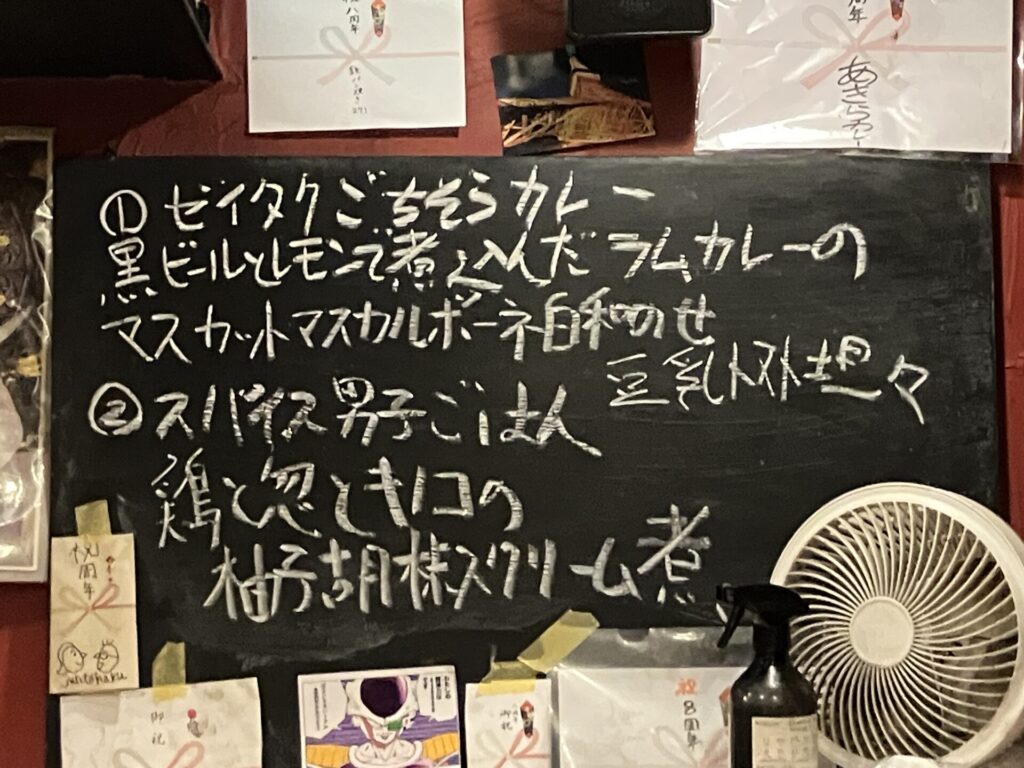 八周年
周年
① ゼイタクごちそうカレー
黒ビールとレモンで煮込んだラムカレーの
マスカットマスカルポーネ白和のせ
豆乳トマト坦々
② スパイス男子ごはん
鶏と忽とキノコの
柚子胡椒スクリーム煮
祝
周年
御祝
御祝
祝
8周年